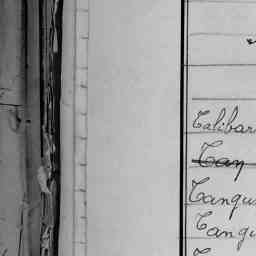 Talibar
Tay
Tangu
Tangu